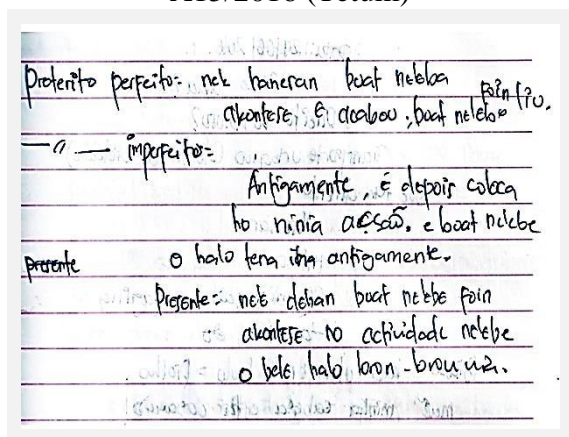 A15/2016 (Tetum)
Preterito perfeito: nek haneran buat nebéba
akontese, é acabou, buat nebebe foin liu.
— " — imperfeito=
Antigamente, é depois coloca
ho ninia acçaõ, e buat nebebe
presente o halo tena iha antigamente.
Presente= nek dehan buat nebbe foin
akontese no actividade nebebe
o bele halo loron-loron nia.